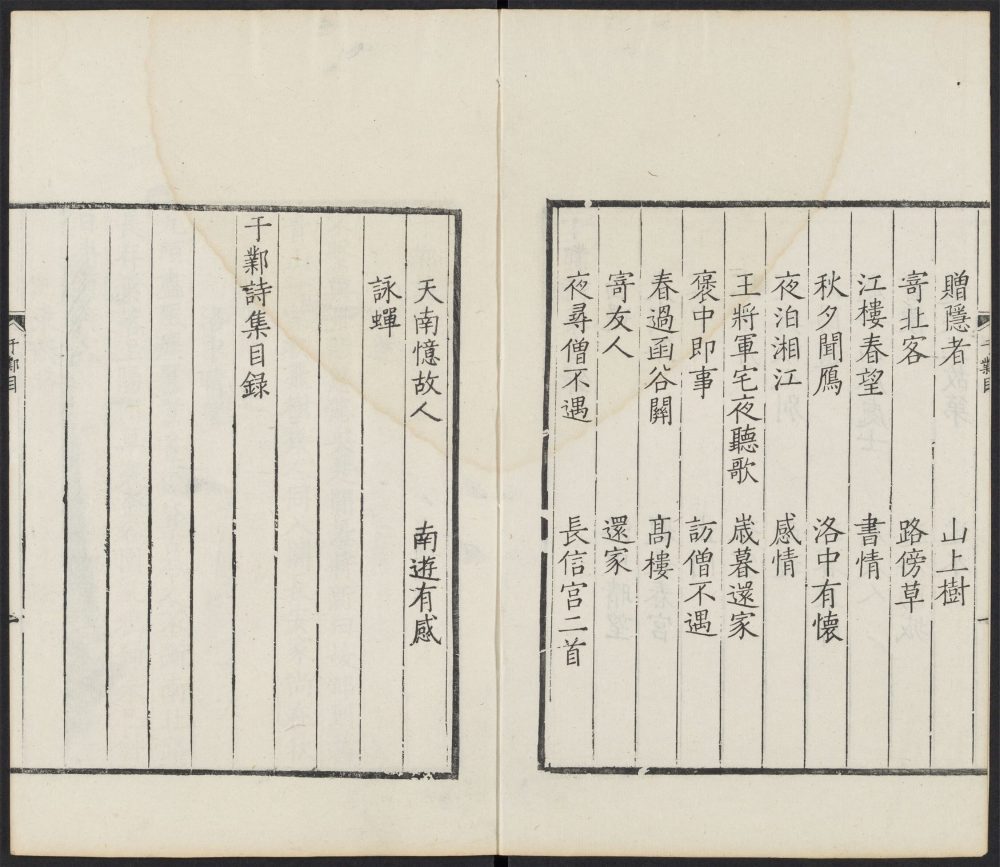 贈隱者 山上樹
寄北客 路傍草
江樓春望 書情
秋夕聞鴈 洛中有懷
夜泊湘江 感情
王將軍宅夜聽歌 歲暮還家
褒中即事 訪僧不遇
春過函谷關 髙樓
寄友人 還家
夜尋僧不遇 長信宮二首
天南憶故人 南遊有感
詠蟬
于鄴詩集目録
于鄴目